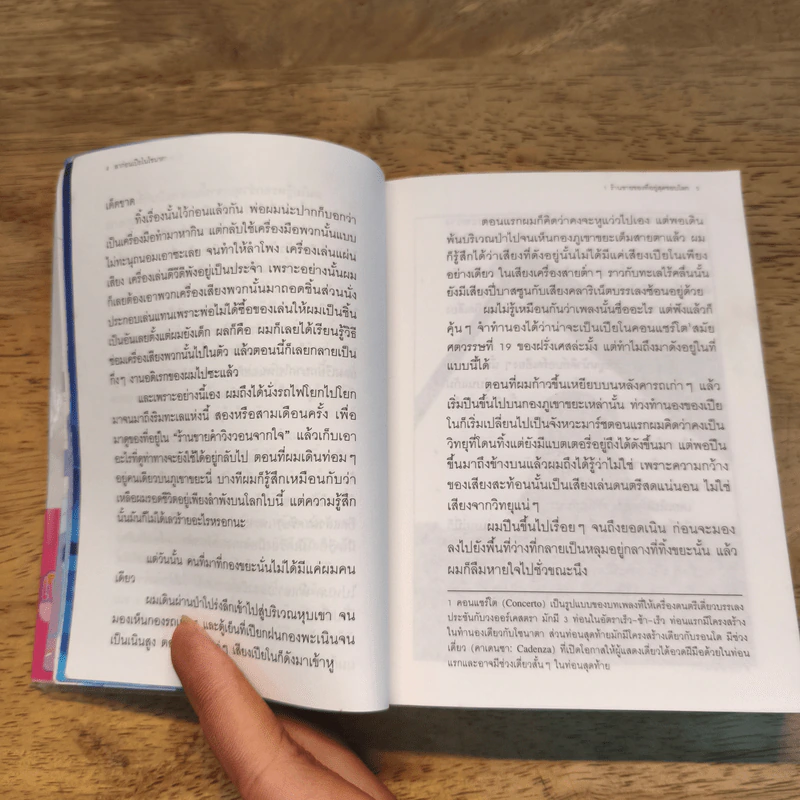 เด็ดขาด
ทิ้งเรื่องนั้นไว้ก่อนแล้วกัน พ่อผมน่ะปากก็บอกว่า
เป็นเครื่องมือทำมาหากิน แต่กลับใช้เครื่องมือพวกนั้นแบบ
ไม่ทะนุถนอมเอาซะเลย จนทำให้ลำโพง เครื่องเล่นแผ่น
เสียง เครื่องเล่นดีวีดีพังอยู่เป็นประจำ เพราะอย่างนั้นผม
ก็เลยต้องเอาพวกเครื่องเสียงพวกนั้นมาถอดชิ้นส่วนนั่ง
ประกอบเล่นแทนเพราะพ่อไม่ได้ซื้อของเล่นให้ผมเป็นชิ้น
เป็นอันเลยตั้งแต่ผมยังเด็ก ผลก็คือ ผมก็เลยได้เรียนรู้วิธี
ซ่อมเครื่องเสียงพวกนั้นไปในตัว แล้วตอนนี้ก็เลยกลายเป็น
กึ่งๆ งานอดิเรกของผมไปซะแล้ว
และเพราะอย่างนี้เอง ผมถึงได้นั่งรถไฟโยกไปโยก
มาจนมาถึงริมทะเลแห่งนี้ สองหรือสามเดือนครั้ง เพื่อ
มาดูของที่อยู่ใน "ร้านขายคำวิงวอนจากใจ" แล้วเก็บเอา
อะไรที่ดูท่าทางจะยังใช้ได้อยู่กลับไป ตอนที่ผมเดินท่อมๆ
อยู่คนเดียวบนภูเขาขยะนี่ บางทีผมก็รู้สึกเหมือนกับว่า
เหลือผมรอดชีวิตอยู่เพียงลำพังบนโลกใบนี้ แต่ความรู้สึก
นั้นมันก็ไม่ได้เลวร้ายอะไรหรอกนะ
แต่วันนั้น คนที่มาที่กองขยะนั่นไม่ได้มีแค่ผมคน
เดียว
ผมเดินผ่านป่าโปร่งลึกเข้าไปสู่บริเวณหุบเขา จน
มองเห็นกองรถ และตู้เย็นที่เปียกฝนกองพะเนินจน
เป็นเนินสูง เสียงเปียโนก็ดังมาเข้าหู
ตอนแรกผมก็คิดว่าคงจะหูแว่วไปเอง แต่พอเดิน
พ้นบริเวณป่าไปจนเห็นกองภูเขาขยะเต็มสายตาแล้ว ผม
ก็รู้สึกได้ว่าเสียงที่ดังอยู่นั้นไม่ได้มีแค่เสียงเปียโนเพียง
อย่างเดียว ในเสียงเครื่องสายต่ำๆ ราวกับทะเลไร้คลื่นนั้น
ยังมีเสียงปี่บาสซูนกับเสียงคลาริเน็ตบรรเลงซ้อนอยู่ด้วย
ผมไม่รู้เหมือนกันว่าเพลงนั้นชื่ออะไร แต่ฟังแล้วก็
คุ้นๆ จำทำนองได้ว่าน่าจะเป็นเปียโนคอนแชร์โต¹สมัย
ศตวรรษที่ 19 ของฝรั่งเศสล่ะมั้ง แต่ทำไมถึงมาดังอยู่ในที่
แบบนี้ได้
ตอนที่ผมก้าวขึ้นเหยียบบนหลังคารถเก่าๆ แล้ว
เริ่มปีนขึ้นไปบนกองภูเขาขยะเหล่านั้น ท่วงทำนองของเปีย
โนก็เริ่มเปลี่ยนไปเป็นจังหวะมาร์ชตอนแรกผมคิดว่าคงเป็น
วิทยุที่โดนทิ้งแต่ยังมีแบตเตอรี่อยู่ถึงได้ดังขึ้นมา แต่พอปีน
ขึ้นมาถึงข้างบนแล้วผมถึงได้รู้ว่าไม่ใช่ เพราะความกว้าง
ของเสียงสะท้อนนั้นเป็นเสียงเล่นดนตรีสดแน่นอน ไม่ใช่
เสียงจากวิทยุแน่ๆ
ผมปีนขึ้นไปเรื่อยๆ จนถึงยอดเนิน ก่อนจะมอง
ลงไปยังพื้นที่ว่างที่กลายเป็นหลุมอยู่กลางที่ทิ้งขยะนั้น แล้ว
ผมก็ลืมหายใจไปชั่วขณะนึง
1 คอนแชร์โต (Concerto) เป็นรูปแบบของบทเพลงที่ให้เครื่องดนตรีเดี่ยวบรรเลง
ประชันกับวงออร์เคสตรา มักมี 3 ท่อนในอัตราเร็ว-ช้า-เร็ว ท่อนแรกมีโครงสร้าง
ในทำนองเดียวกับโซนาตา ส่วนท่อนสุดท้ายมักมีโครงสร้างเดียวกับรอนโด มีช่วง
เดี่ยว (คาเดนซา: Cadenza) ที่เปิดโอกาสให้ผู้แสดงเดี่ยวได้อวดฝีมือด้วยในท่อน
แรกและอาจมีช่วงเดี่ยวสั้นๆ ในท่อนสุดท้าย